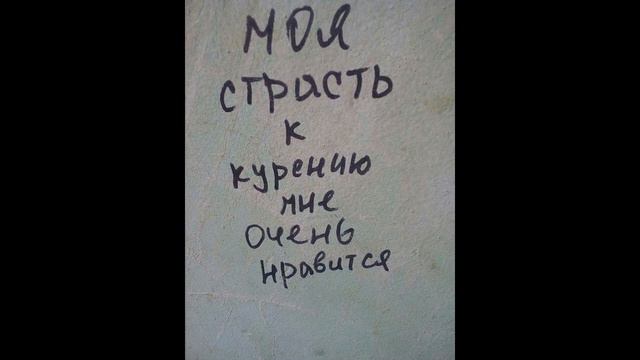 моя
страсть
к
курению
мне
очень
нравится